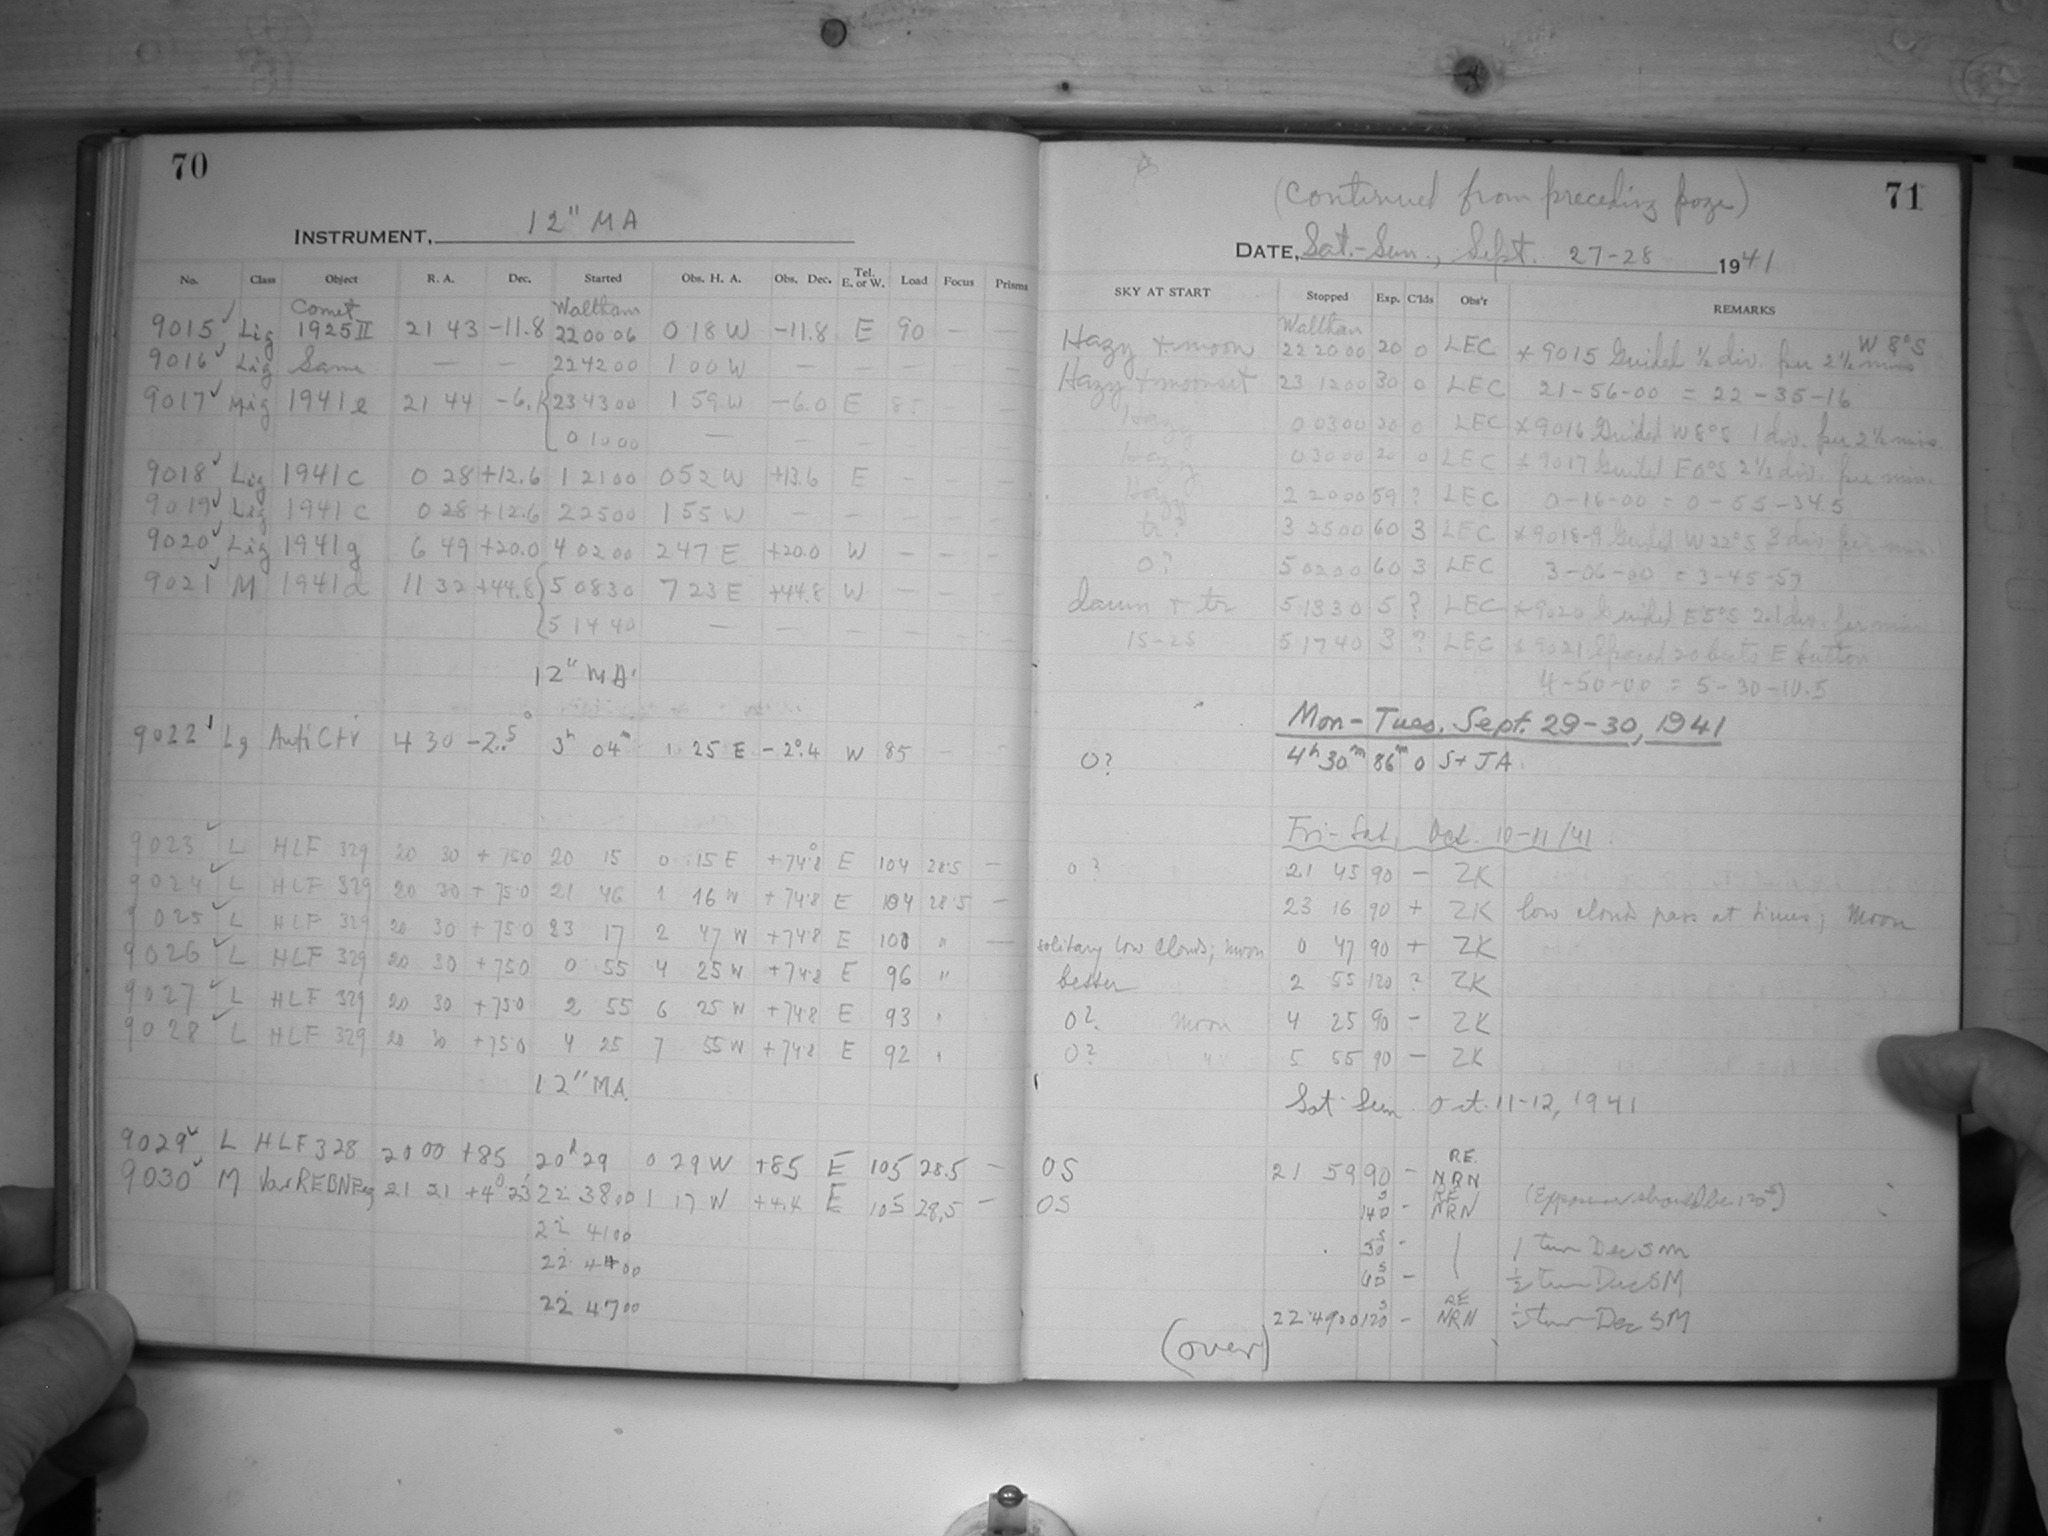 70
INSTRUMENT, 12" MA
No. Class Object R. A. Dec. Started Obs. H. A. Obs. Dec. Tel. E. or W. Load Focus Prisms
Comet Waltham
9015 Lig 1925 II 21 43 -11.8 22 00 06 0 18 W -11.8 E 90 — —
9016 Lig Same — — 22 42 00 1 00 W — — — — —
9017 Mig 1941 e 21 44 23 43 00 1 59 W -6.0 E 85 — —
0 10 00 — — —
9018 Lig 1941 c 0 28 +12.6 1 21 00 0 52 W +13.6 E — —
9019 Lig 1941 c 0 28 +12.6 2 25 00 1 55 W — — — — —
9020 Lig 1941 g 6 49 +20.0 4 02 00 2 47 E +20.0 W — — —
9021 M 1941 d 11 32 +44.8 5 08 30 7 23 E +44.8 W — — —
5 14 40 — — — — — —
12" MA
9022 Lg Anti Ctr 4 30 -2.5° 3h 04m 1 25 E -2°.4 W 85 — —
9023 L HLF 329 20 30 +75.0 20 15 0 15 E +74°.8 E 104 28.5 —
9024 L HLF 329 20 30 +75.0 21 46 1 16 W +74.8 E 104 28.5 —
9025 L HLF 329 20 30 +75.0 23 17 2 47 W +74.8 E 100 " —
9026 L HLF 329 20 30 +75.0 0 55 4 25 W +74.8 E 96 "
9027 L HLF 329 20 30 +75.0 2 55 6 25 W +74.8 E 93 "
9028 L HLF 329 20 30 +75.0 4 25 7 55 W +74.8 E 92 "
12" M.A.
9029 L HLF 328 20 00 +85 20h 29 0 29 W +85 E 105 28.5 —
9030 M 21 21 +4° 23' 22 38 00 1 17 W +4.4 E 105 28.5 —
22 41 00
22 44 00
22 47 00
(continued from preceding page) 71
DATE, Sat.-Sun., Sept. 27-28 1941
SKY AT START Stopped Exp. C'lds Obs'r REMARKS
Waltham W 8° S
Hazy + moon 22 20 00 20 0 LEC * 9015 Guided ½ div. per 2½ mins
Hazy + moonset 23 12 00 30 0 LEC 21-56-00 = 22-35-16
Hazy 0 03 00 20 0 LEC * 9016 Guided W 8° S 1 div. per 2½ mins.
Hazy 0 30 00 20 0 LEC * 9017 Guided E 0° S 2⅓ div. per min.
Hazy 2 20 00 59 ? LEC 0-16-00 = 0-55-34.5
tr? 3 25 00 60 3 LEC * 9018-9 Guided W 22° S 3 div per min.
0? 5 02 00 60 3 LEC 3-06-00 = 3-45-57
dawn + tr 5 13 30 5 ? LEC * 9020 Guided E 5° S 2.1 div. per min
15-25 5 17 40 3 ? LEC * 9021 Spaced 20 beats E button
4-50-00 = 5-30-10.5
Mon-Tues. Sept. 29-30, 1941
0? 4h 30m 86m 0 S+JA
Fri-Sat, Oct. 10-11/41
0? 21 45 90 — ZK
23 16 90 + ZK low clouds pass at times; Moon
solitary low clouds; moon 0 47 90 + ZK
better 2 55 120 ? ZK
0? Moon 4 25 90 — ZK
0? " 5 55 90 — ZK
Sat-Sun Oct. 11-12, 1941
OS 21 59 90 — RE. NRN
OS 140s — RE NRN (Exposure should be 120s)
— 1 turn Dec SM
— ½ turn Dec SM
22 49 00 120s — RE NRN ½ turn Dec SM
(over)